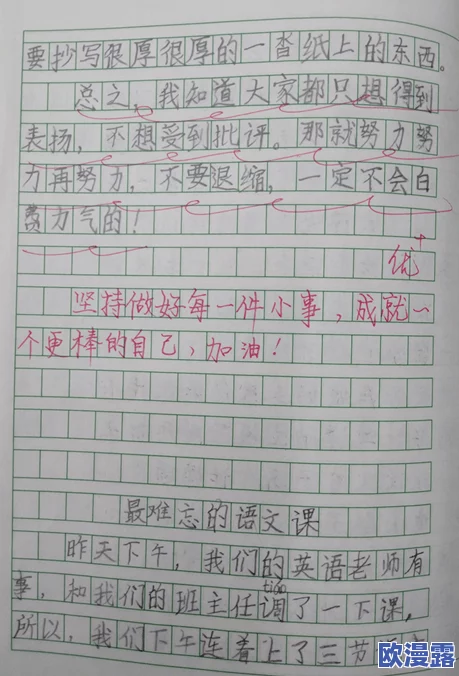 要抄写很厚很厚的一沓纸上的东西。
总之，我知道大家都只想得到
表扬，不想受到批评。那就努力努
力再努力，不要退缩，一定不会白
费力气的！
优+
坚持做好每一件小事，成就一
个更棒的自己，加油！
最难忘的语文课
昨天下午，我们的英语老师有
tiáo
事，和我们的班主任调了一下课，
所以，我们下午连着上了三节
欧漫露